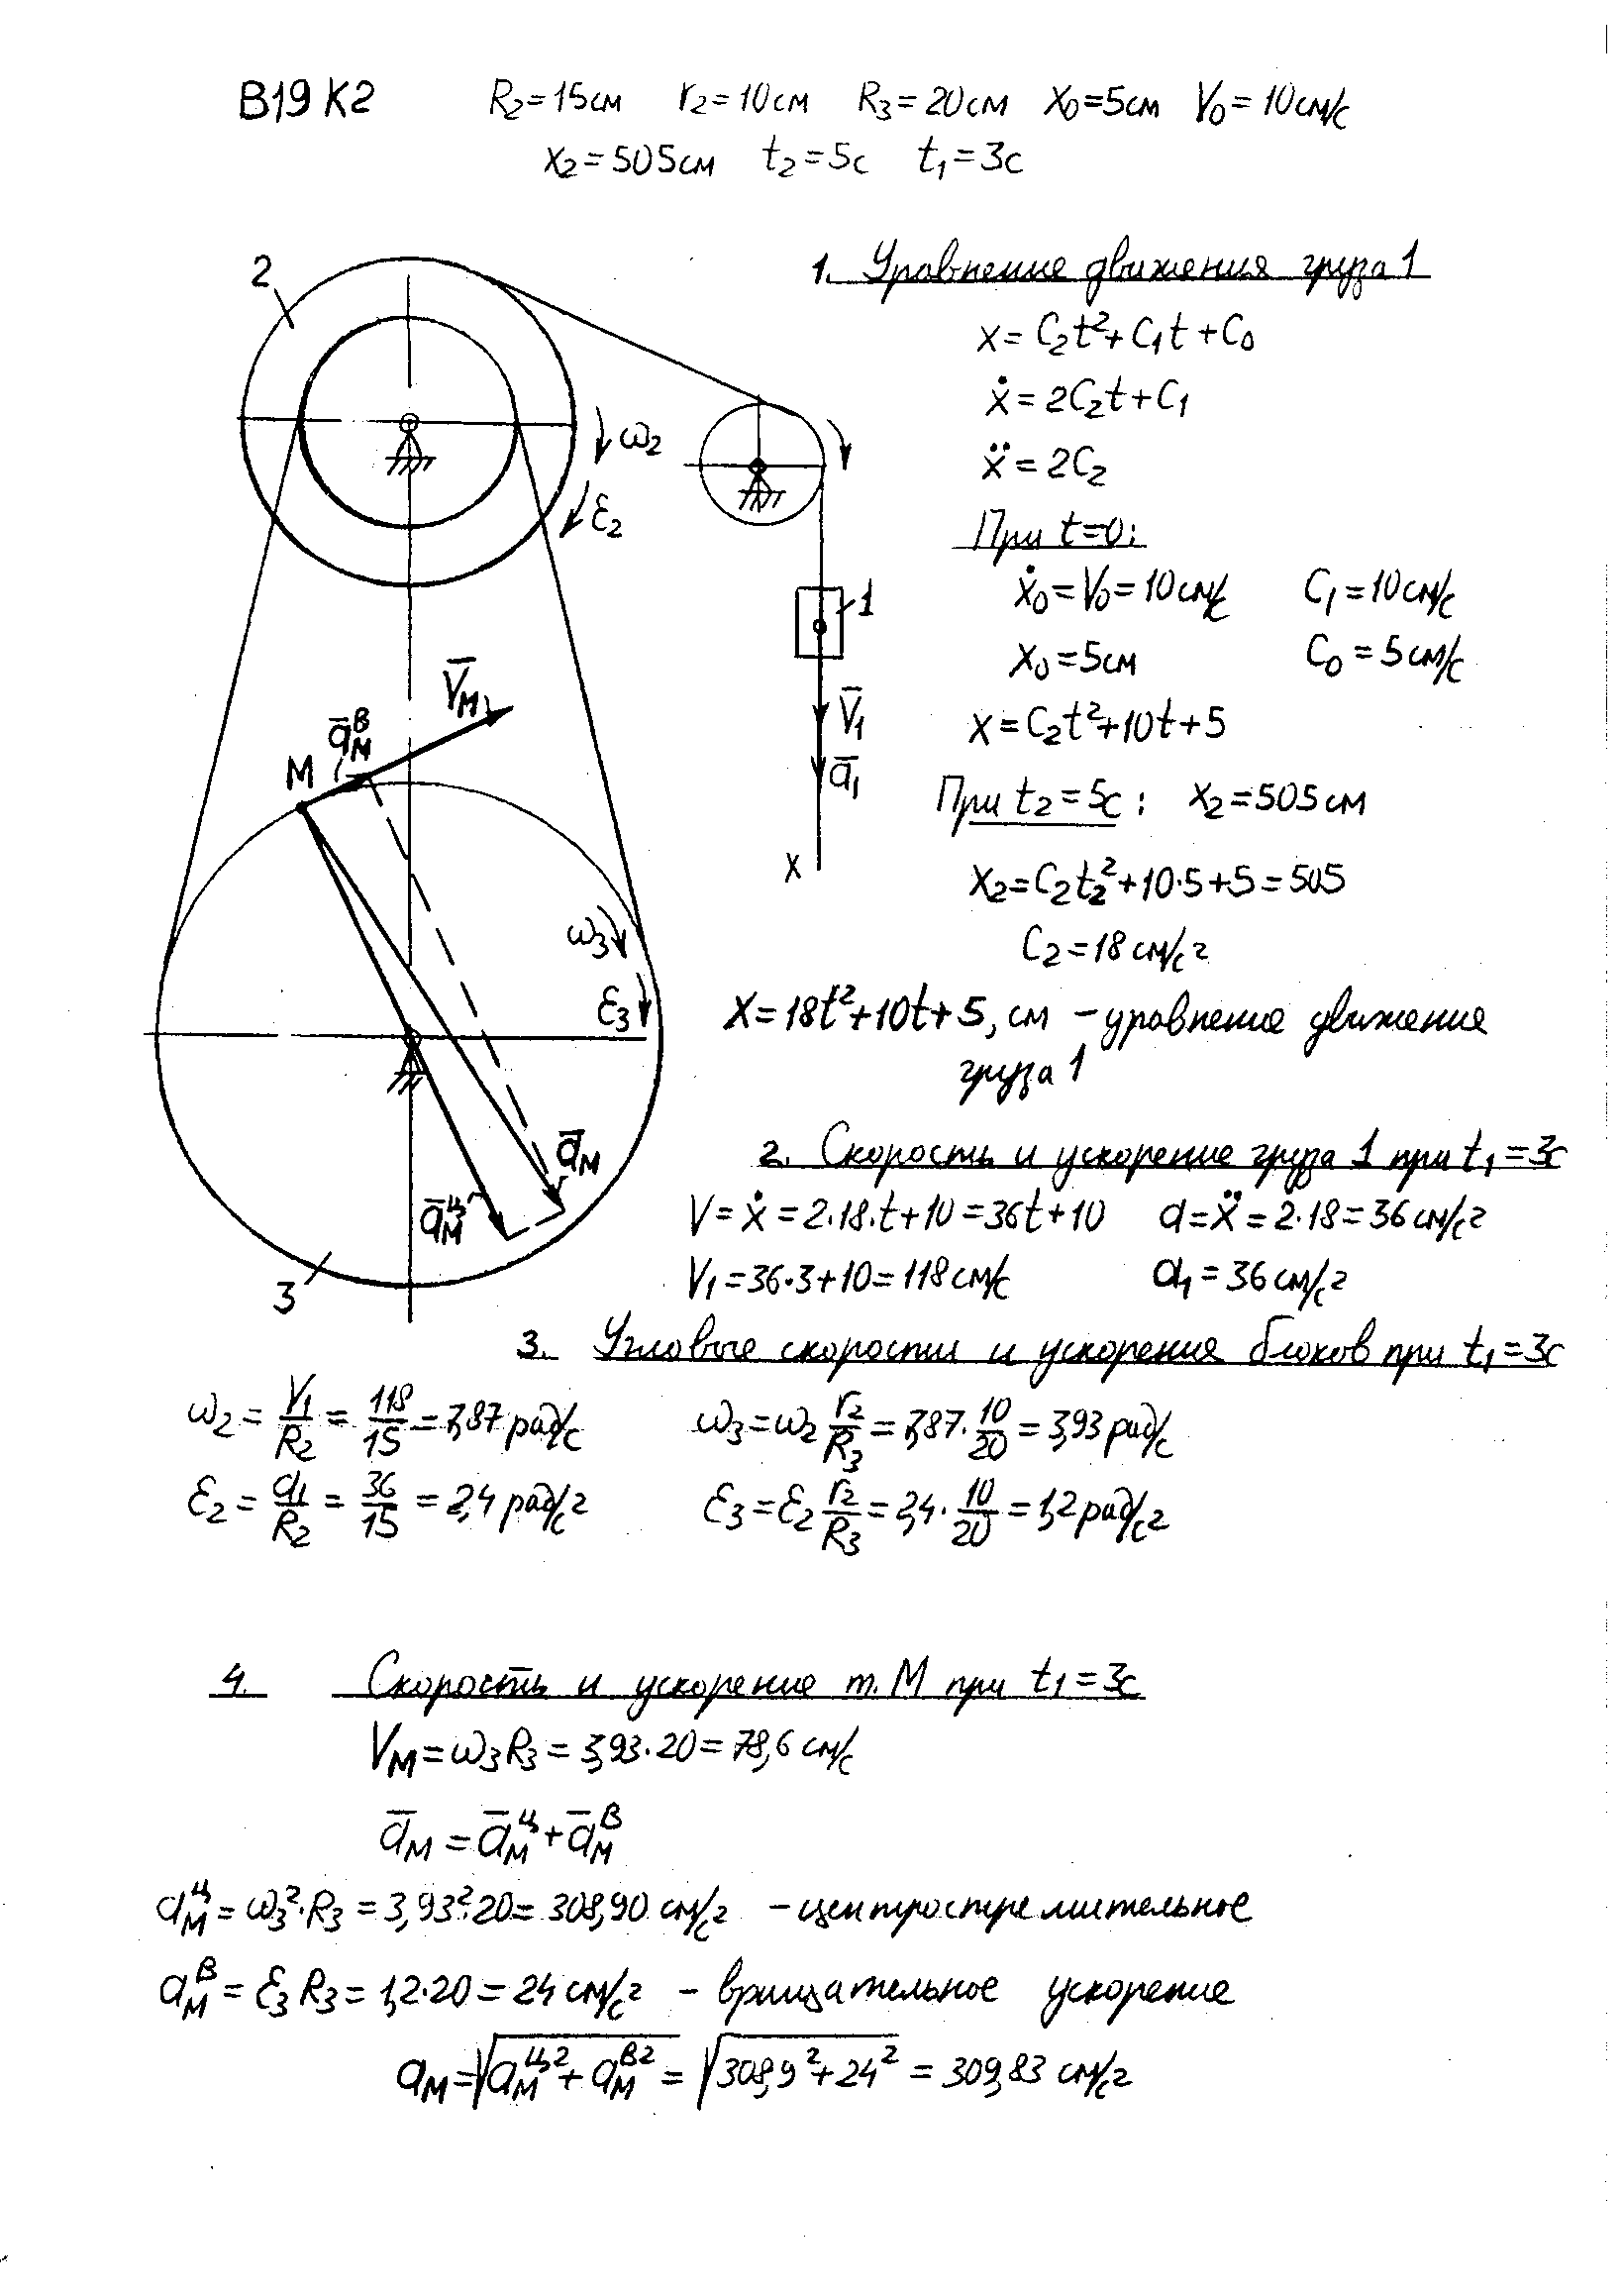 В19 К2 R₂=15см r₂=10см R₃=20см X₀=5см V₀=10см/с
X₂=505см t₂=5с t₁=3с
1. Уравнение движения груза 1
x=C₂t²+C₁t+C₀
ẋ=2C₂t+C₁
ẍ=2C₂
При t=0:
ẋ₀=V₀=10см/с C₁=10см/с
X₀=5см C₀=5см/с
X=C₂t²+10t+5
При t₂=5с: X₂=505см
X₂=C₂t₂²+10·5+5=505
C₂=18см/с²
X=18t²+10t+5,см –уравнение движения
груза 1
2
ω₂
ε₂
1
V̄₁
ā₁
X
V̄м
āмᴮ
М
ω₃
ε₃
āм
āмц
3
2. Скорость и ускорение груза 1 при t₁=3с
V=ẋ=2·18·t+10=36t+10 a=ẍ=2·18=36см/с²
V₁=36·3+10=118см/с a₁=36см/с²
3. Угловые скорости и ускорения блоков при t₁=3с
ω₂=V₁/R₂=118/15=7,87рад/с ω₃=ω₂r₂/R₃=7,87·10/20=3,93рад/с
ε₂=a₁/R₂=36/15=2,4рад/с² ε₃=ε₂r₂/R₃=2,4·10/20=1,2рад/с²
4. Скорость и ускорение т.М при t₁=3с
Vм=ω₃R₃=3,93·20=78,6см/с
āм=āмц+āмᴮ
aмц=ω₃²·R₃=3,93²·20=308,90 см/с² –центростремительное
aмᴮ=ε₃R₃=1,2·20=24см/с² – врищательное ускорение
aм=√(aмц²+aмᴮ²)=√(308,9²+24²)=309,83 см/с²